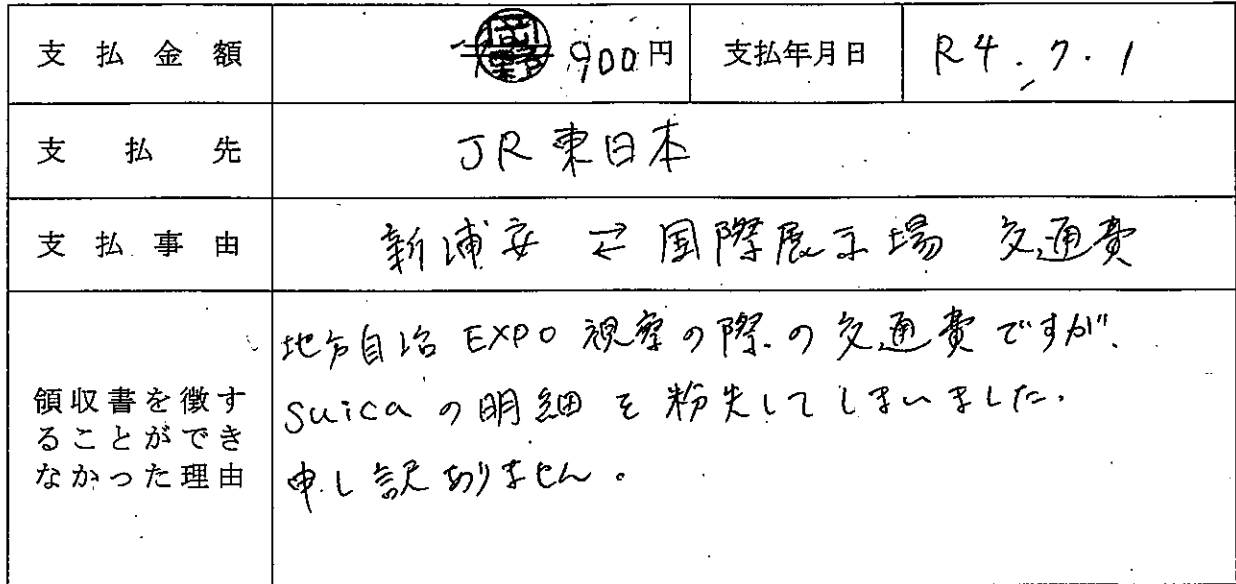 支払金額 900円 支払年月日 R4.7.1
支払先 JR東日本
支払事由 新浦安 ⇄ 国際展示場 交通費
領収書を徴す
ることができ
なかった理由
地方自治EXPO視察の際の交通費ですが、
suicaの明細を粉失してしまいました.
申し訳ありません。